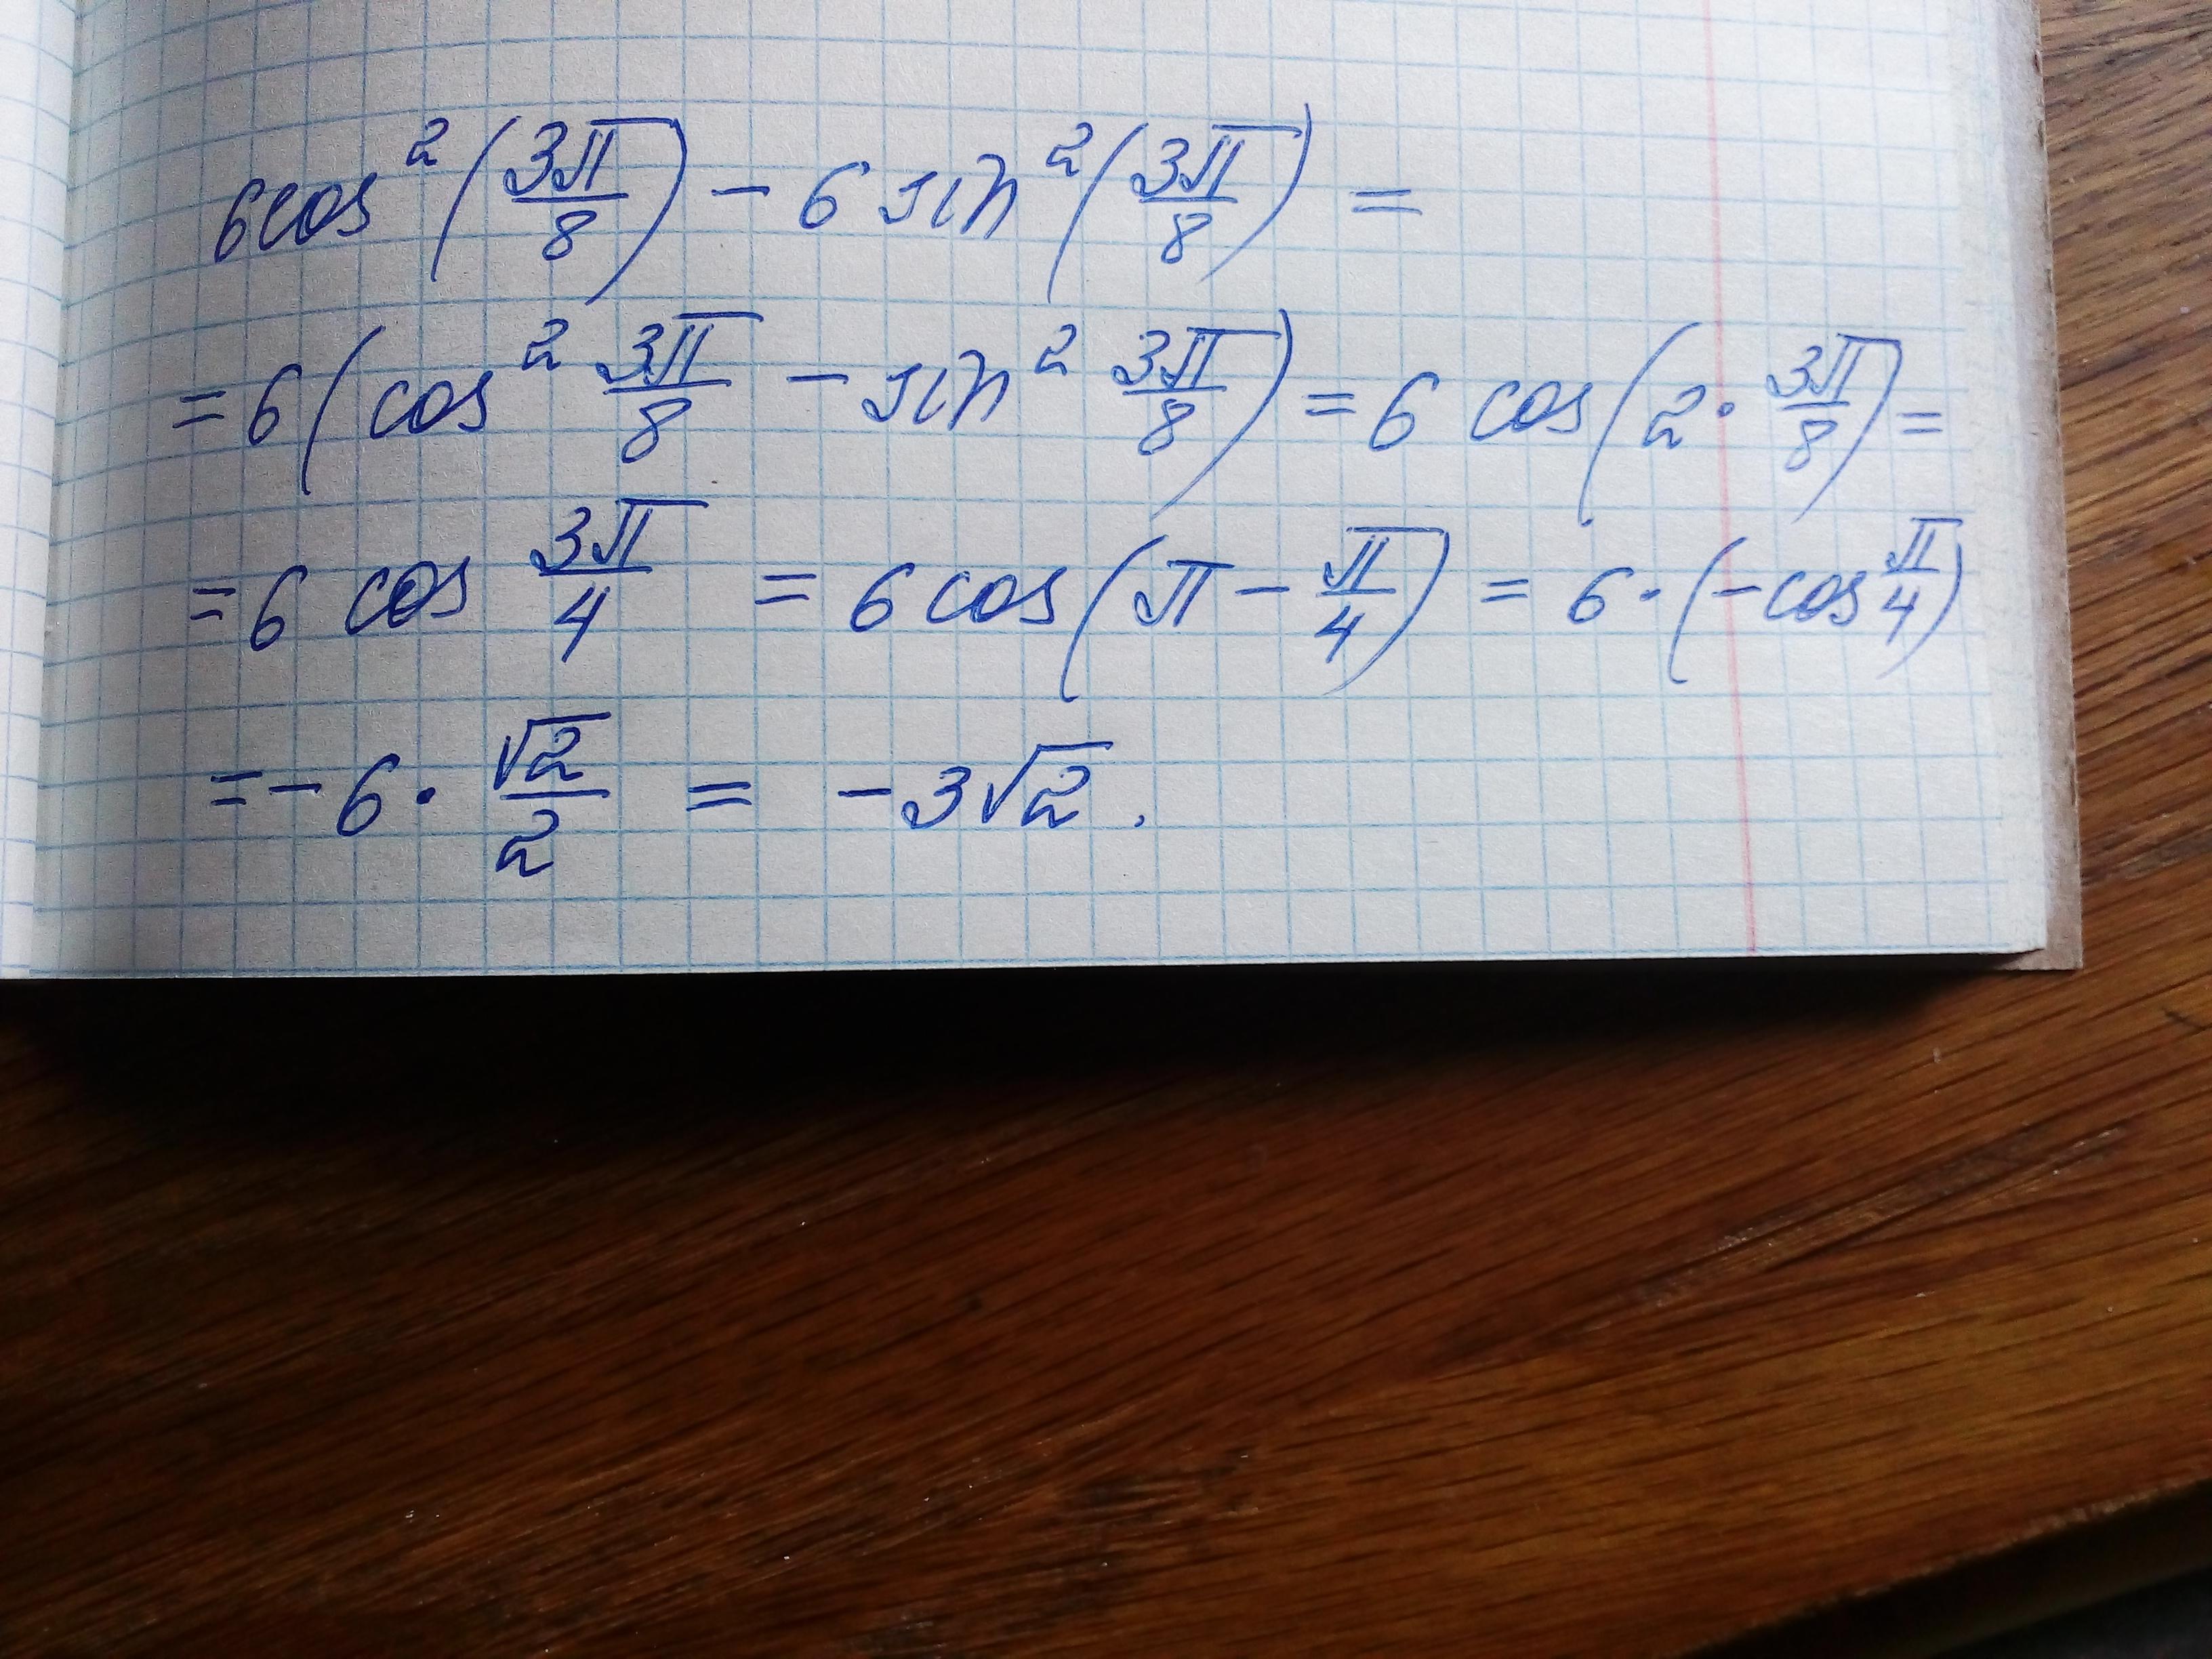 6cos²(3π/8) - 6 sin²(3π/8) =
= 6(cos² 3π/8 - sin² 3π/8) = 6 cos(2 · 3π/8) =
= 6 cos 3π/4 = 6 cos(π - π/4) = 6 · (-cos π/4)
= - 6 · √2/2 = -3√2.